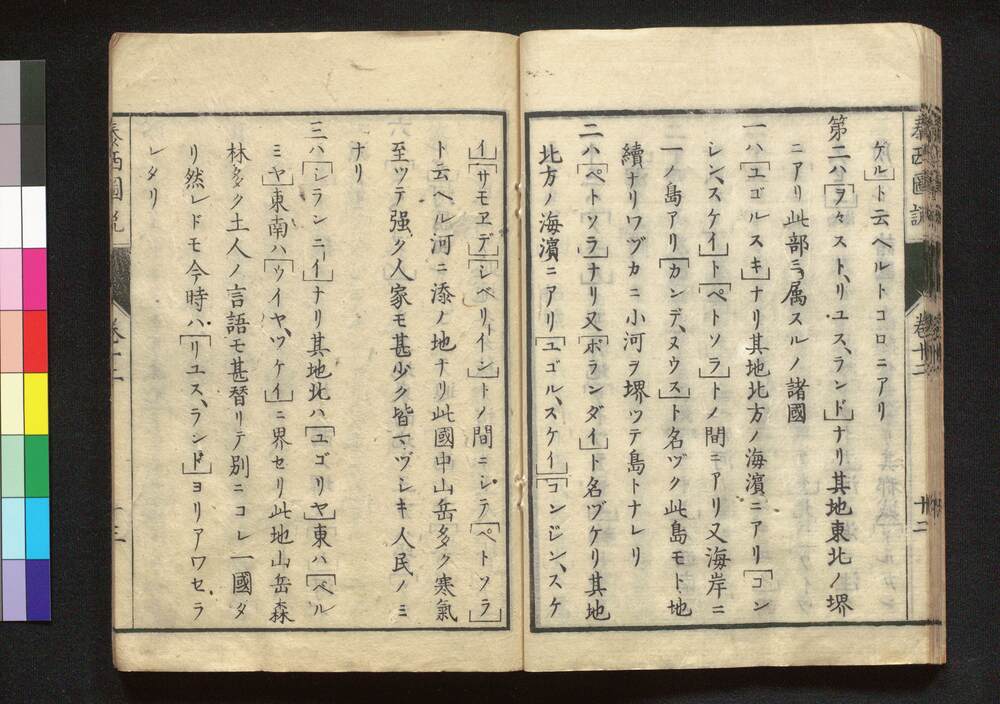 泰西圖説
卷十二
十二
ゲルト云ヘルトコロニアリ
第二ハ「ヲヽスト、リ ユス、ランド」ナリ其地東北ノ堺
ニアリ此部ニ属スルノ諸國
一ハ「ユゴルスキ」ナリ其地北方ノ海濱ニアリ「コン
シン、スケイ」ト「ペトソラ」トノ間ニアリ又海岸ニ
一ノ島アリ「カンデ、ヌウス」ト名ヅク此島モト地
續ナリワヅカニ小河ヲ堺ツテ島トナレリ
二ハ「ペトソラ」ナリ又「ボランダイ」ト名ヅケリ其地
北方ノ海濱ニアリ「ユゴル、スケイ」「コンジン、スケ
イ」「サモヱデ」「シベリーイン」トノ間ニシテ「ペトソラ」
ト云ヘル河ニ添ノ地ナリ此國中山岳多ク寒氣
至ツテ强ク人家モ甚少ク皆マヅシキ人民ノミ
ナリ
三ハ「シランニーイ」ナリ其地北ハ「ユゴリヤ」東ハ「ペル
ミヤ」東南ハ「ウイヤ、ツケイ」ニ界セリ此地山岳森
林多ク土人ノ言語モ甚替リテ別ニコレ一國タ
リ然レドモ今時ハ「リユス、ランド」ヨリアワセラ
レタリ
泰西圖説
卷十二
十三